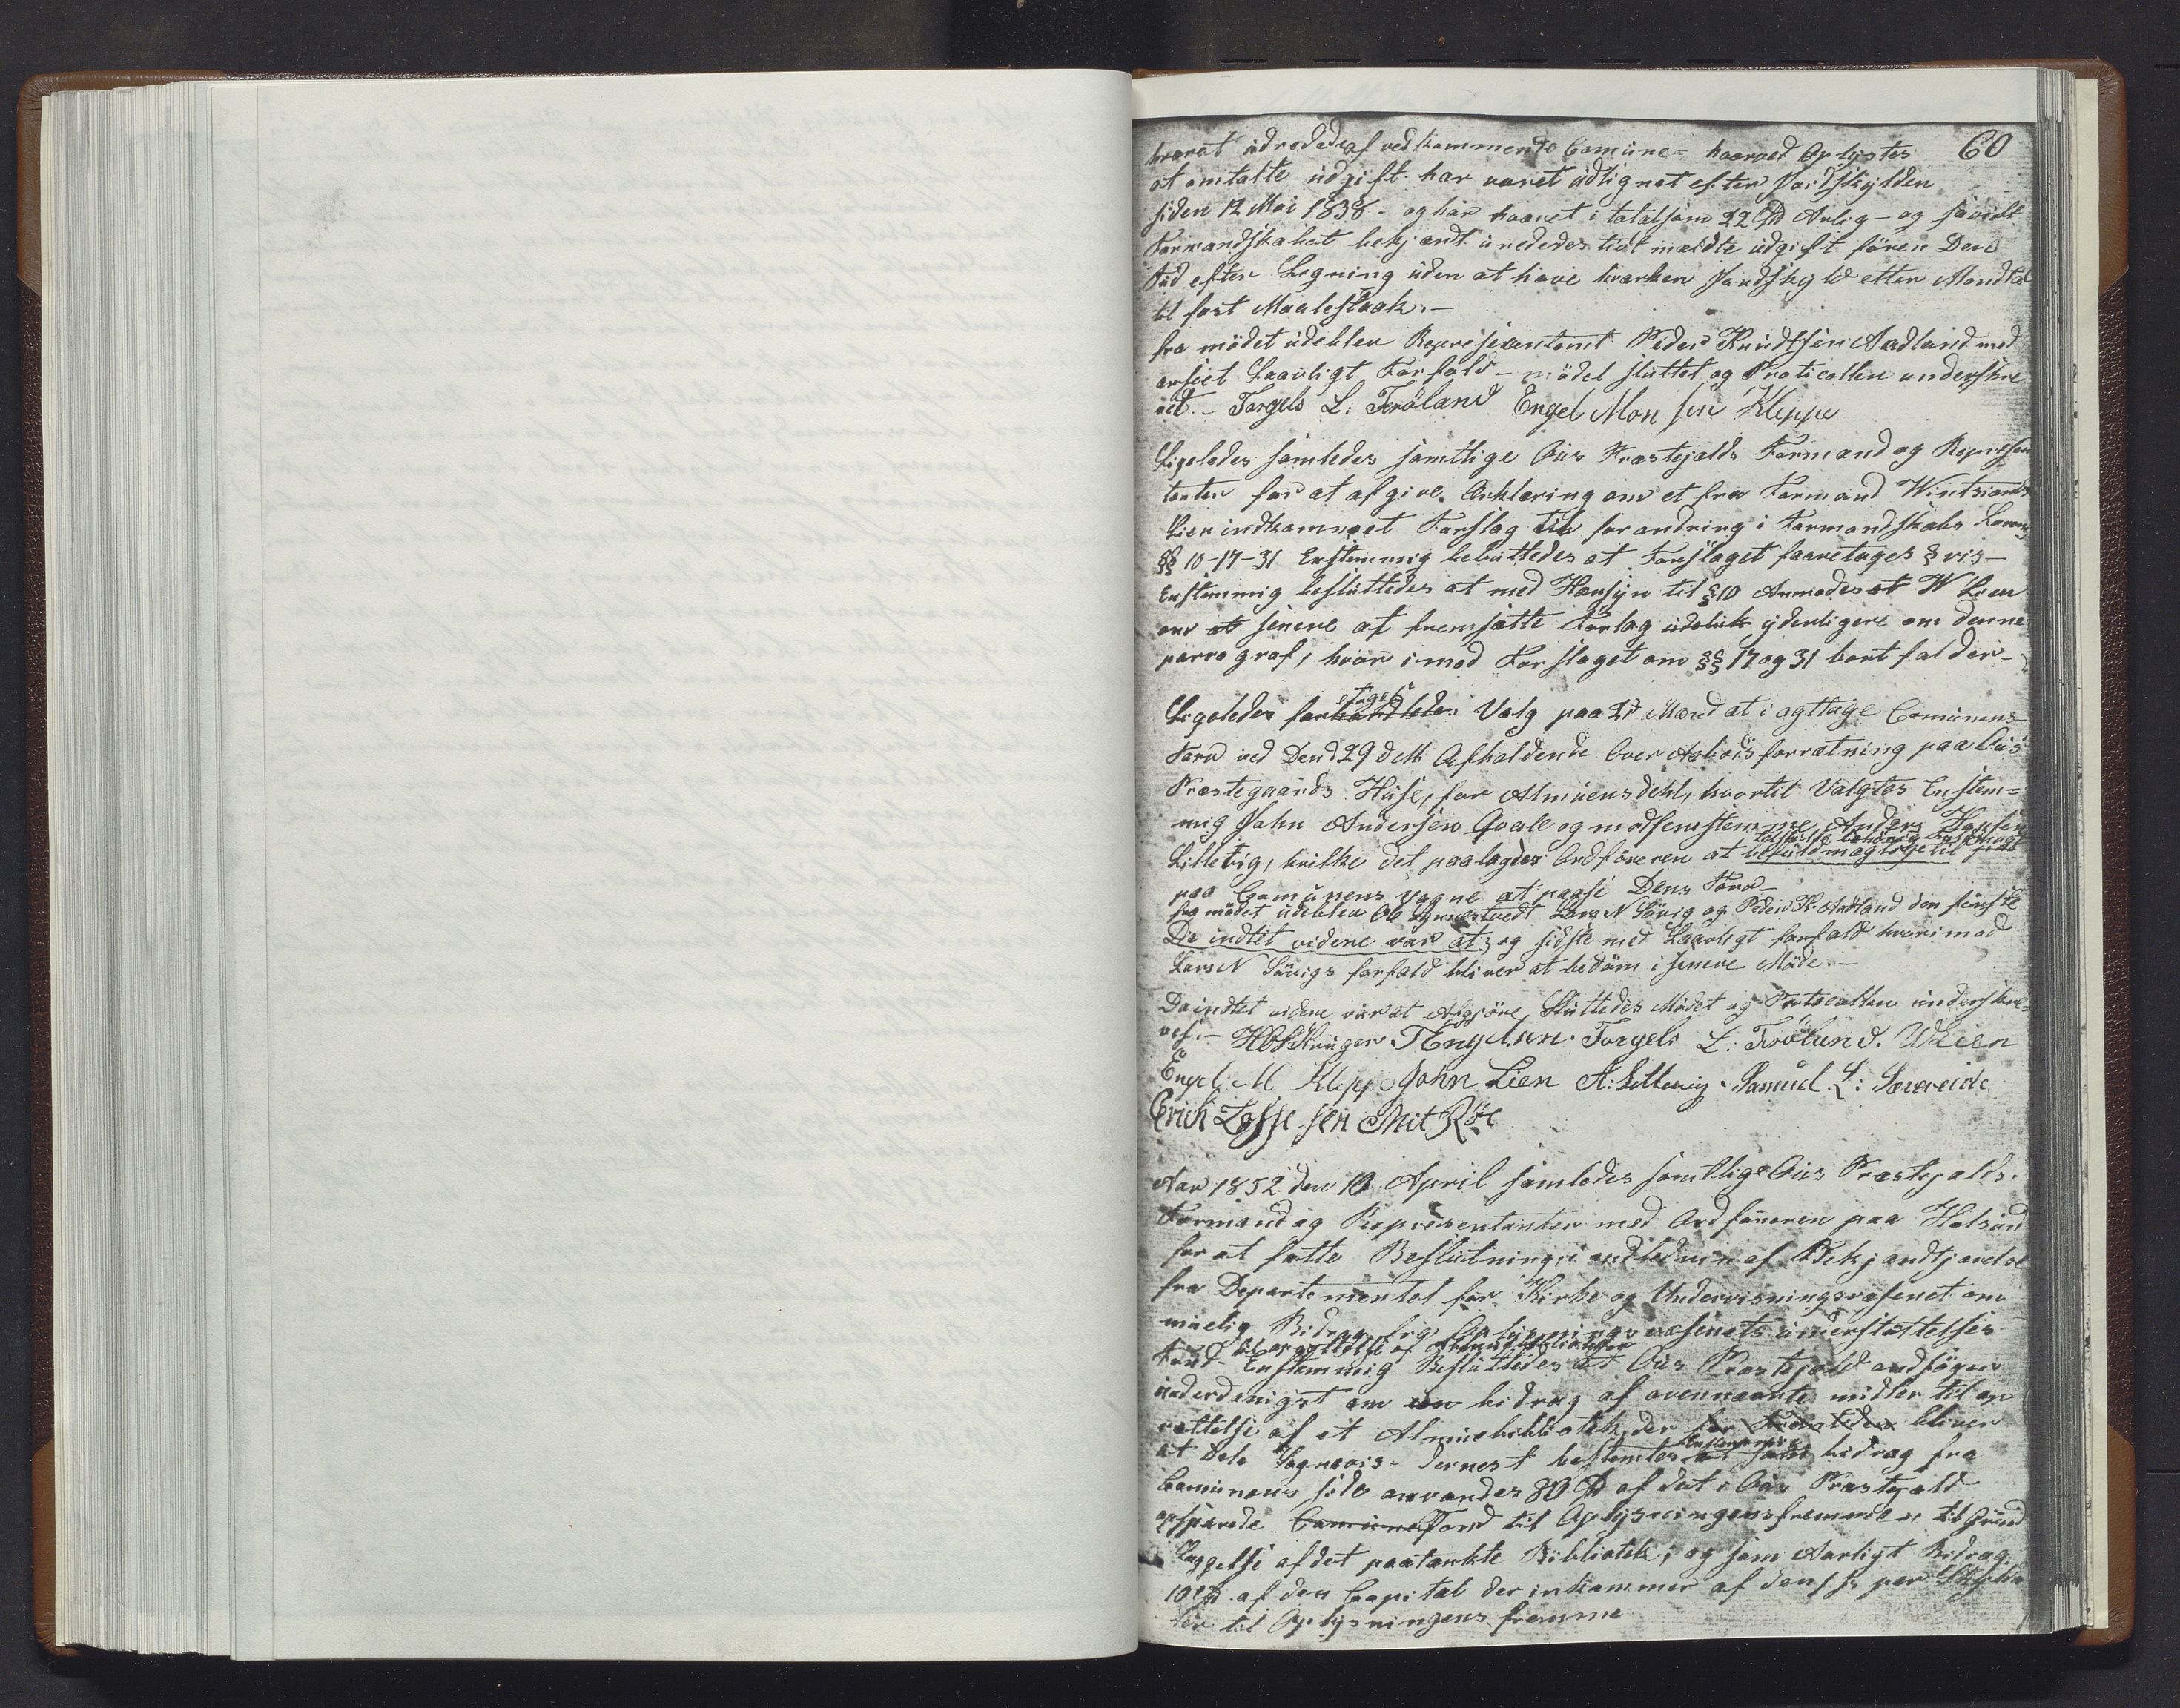 60
været udrededes af vedkommende Comune- hvorved Oplystes
at omtalte udgift har været udlignet efter Jordskylden
siden 12 Mai 1838 - og har været i total som 22 Spd Aarlig - og saavidt
Formandskabet bekjændt unededes tidt meldte udgift føren Den
Tid efter Ligning uden at have hverken Jordskyld etter Mandtal
til fast Maalestaak.-
fra mødet udeblev Represæntant Peder Knudtsen Aadland med
anseet Laavligt Forfald - mødet sluttet og Proticollen underskre
vet. - Torgels L: Frøland Engel Monsen Kleppe
Ligeledes samledes samtlige Ous Præstejælds Formænd og Represen
tanter for at afgive Erklæring om et fra Formand Wintsiands
Lien indkommet Forslag til forandring i Formandskabs Loven
§§ 10-17-31 Enstemmig besluttedes at Forslaget foaretages § vis-
Enstemmig besluttedes at med Hensyn til § 10 Anmodes at W Lien
om at senere at fremsætte Forlag udeluk yderligere om denne
parragraf, hvor imod Forslaget om §§ 17 og 31 bort falder-
Ligeledes forhandledes etoges Valg paa 2de Mænd at iagttage Comunens
Tarv ved Den 29 d M. Afholdende Over Aabodsforretning paa Ous
Præstegaards Huse, for Almuens dehl, hvortil Valgtes Enstem=
mig John Andersen Qvale og mod fem stemme Anders Hansen
Lilletvig, hvilke det paalagdes Ordføreren at befuldmægtige til
paa Comunens vegne at paase Dens Tarv-
fra mødet udeblev Lars N Søvig og Peder K. Aadland den første
Die indtet videre var at, og sidste med Laavligt forfald hvorimod
Lars N Søvigs forfald bliver at bedøm i senere Møde.-
Da indtet videre var at Afgjøre, Sluttedes Mødet og Protocollen underskre=
ves.- HCS Krüger. T Engelsen. Torgels L: Frøland. W Lien
Engel M Kleppe John Lien A: Lilletvig. Samuel L: Sæveide
Erich Lasse sen Mit Røe
Aar 1852 den 10 April samledes samtlige Ous Præstejælds.
Formænd og Representanter med Ordføreren paa Halsund
for at fatte Beslutning, i andledning af Bekjændtjørelse
fra Departementet for Kirke og Undervisningsvæsenet om
muelig Bidrag fra Oplysningsvæsenets understøttelses
til oprettelse af Almuebibliotheker
Fond- Enstemmig Besluttedes at Ous Præstejæld andsøger
underdenigst om en bidrag af ovennævnte midler til op
rettelse af et Almuebibliotek, der for Fremtiden bliver
at Dele Sognevis- dernest bestemtes Enstemmig at som bidrag fra
Comunens side anvendes 80 Spd af det i Ous Præstejæld
opsparede Comune Fond til Oplysningensfremme, til Grund
læggelse af det paatænkte Bibliotek, og som Aarligt Bidrag
10 Spd af den Capital der inkommer af den s ß per Skjæp
ler til Oplysningens fremme